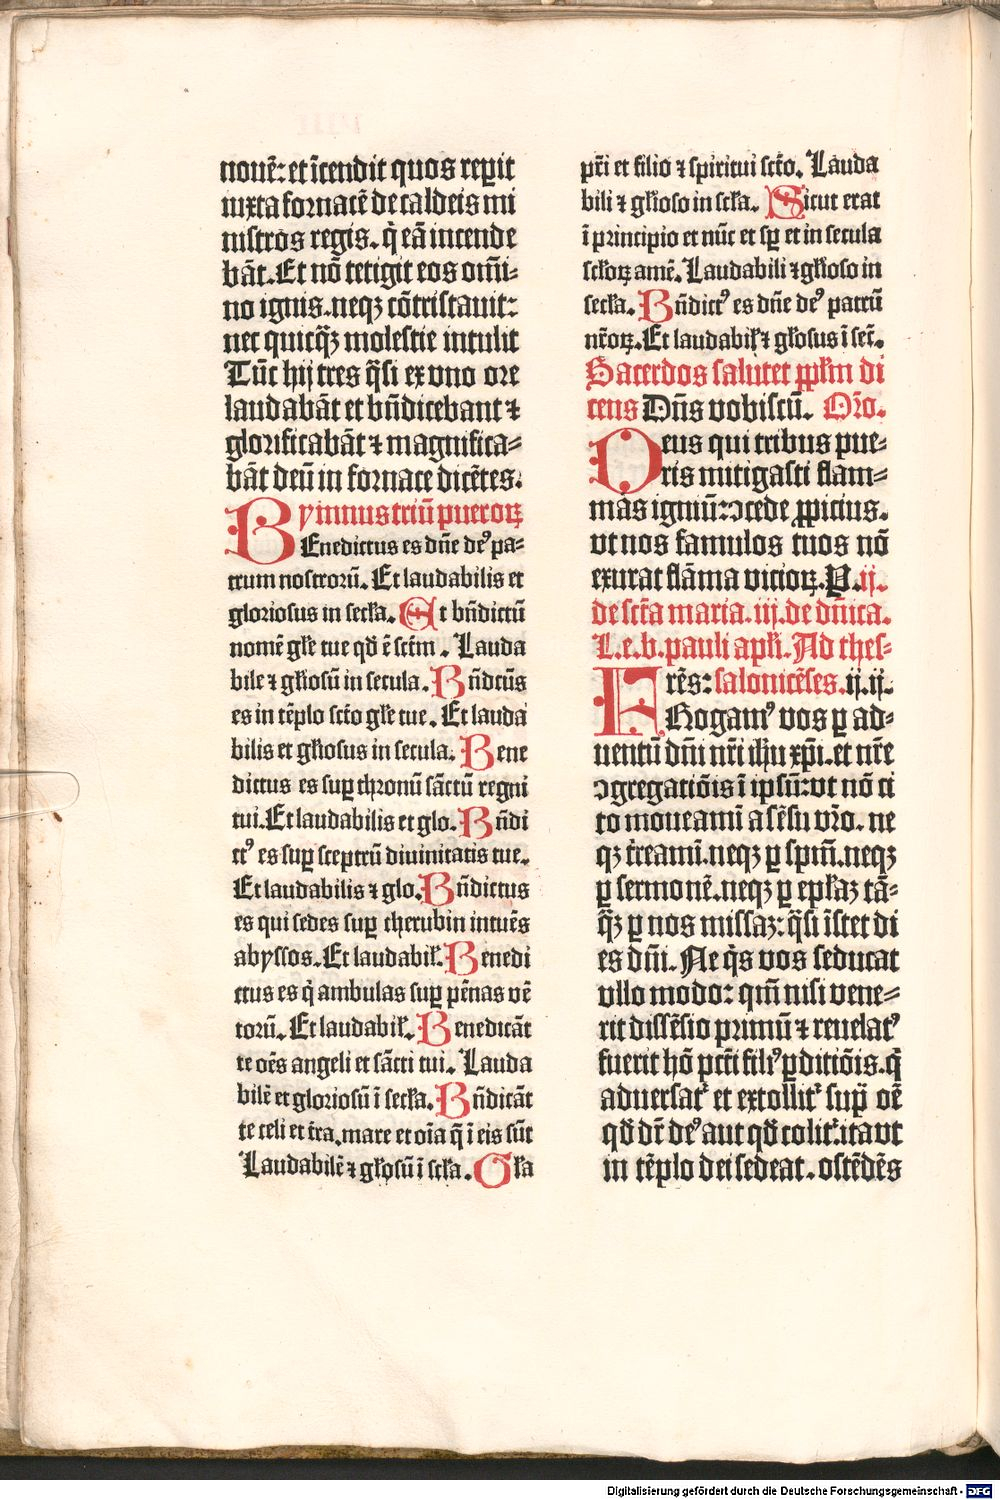 nouē: et īcendit quos repit
iuxta fornacē de caldeis mi
nistros regis. q̇ eā incende
bāt. Et nō tetigit eos om̄i-
no ignis. neqꝫ cōtristauit:
nec quicq̄ꝫ molestie intulit
Tūc hij tres q̄si ex vno ore
laudabāt et bn̄dicebant ⁊
glorificabāt ⁊ magnifica⸗
bāt deū in fornace dicētes.
Hymnus triū pueroꝝ
BEnedictus es dn̄e deꝰ pa⸗
trum nostrorū. Et laudabilis et
gloriosus in secl̄a. Et bn̄dictū
nomē gl̄e tue qd̄ ē sctm̄. Lauda
bile ⁊ gl̄iosū in secula. Bn̄dcūs
es in tēplo sct̄o gl̄e tue. Et lauda
bilis et gl̄iosus in secula. Bene
dictus es suꝑ thronū sāctū regni
tui. Et laudabilis et glo. Bn̄di
ctꝰ es suꝑ sceptrū diuinitatis tue.
Et laudabilis ⁊ glo. Bn̄dictus
es qui sedes suꝑ cherubin intuēs
abyssos. Et laudabil̄. Benedi
ctus es q̇ ambulas suꝑ pēnas vē
torū. Et laudabil̄. Benedicāt
te oēs angeli et sācti tui. Lauda
bilē et gloriosū ī secl̄a. Bn̄dicāt
te celi et t̄ra. mare et oīa q̄ ī eis sūt
Laudabilē ⁊ gl̄osū ī scl̄a. Gl̄a
pr̄i et filio ⁊ spiritui sct̄o. Lauda
bili ⁊ gl̄ioso in scl̄a. Sicut erat
ī principio et nūc et sꝑ et in secula
scl̄oꝝ amē. Laudabili ⁊ gl̄ioso in
secl̄a. Bn̄dictꝰ es dn̄e deꝰ patrū
nr̄oꝝ. Et laudabil̄ ⁊ gl̄osus ī sec̄.
Sacerdos salutet ppl̄m di
cens Dn̄s vobiscū. Or̄o.
DEus qui tribus pue⸗
ris mitigasti flam⸗
mas igniū: ↄcede ꝓpicius.
vt nos famulos tuos nō
exurat flāma vicioꝝ. P. ij.
de sct̄a maria. iij. de dn̄ica.
L. e. b. pauli apl̄i. Ad thes⸗
FRēs: salonicēses. ij. ij.
Rogamꝰ vos ꝑ ad⸗
uentū dn̄i nr̄i ihū xp̄i. et nr̄e
ↄgregatiōis ī ipsū: vt nō ci
to moueami a sēsu vr̄o. ne
qꝫ t̄reami. neqꝫ ꝑ spm̄. neqꝫ
ꝑ sermonē. neqꝫ ꝑ epl̄aꝫ tā⸗
q̄ꝫ ꝑ nos missaꝫ: q̄si īstet di
es dn̄i. Ne q̇s vos seducat
vllo modo: qm̄ nisi vene⸗
rit dissēsio primū ⁊ reuelatꝰ
fuerit hō pctī filiꝰ ꝑditiōis. q̇
aduersat᷑ et extollit᷑ supͣ oē
qd̄ dr̄ deꝰ aut qd̄ colit᷑. ita vt
in tēplo dei sedeat. ostēdēs
Digitalisierung gefördert durch die Deutsche Forschungsgemeinschaft - DFG